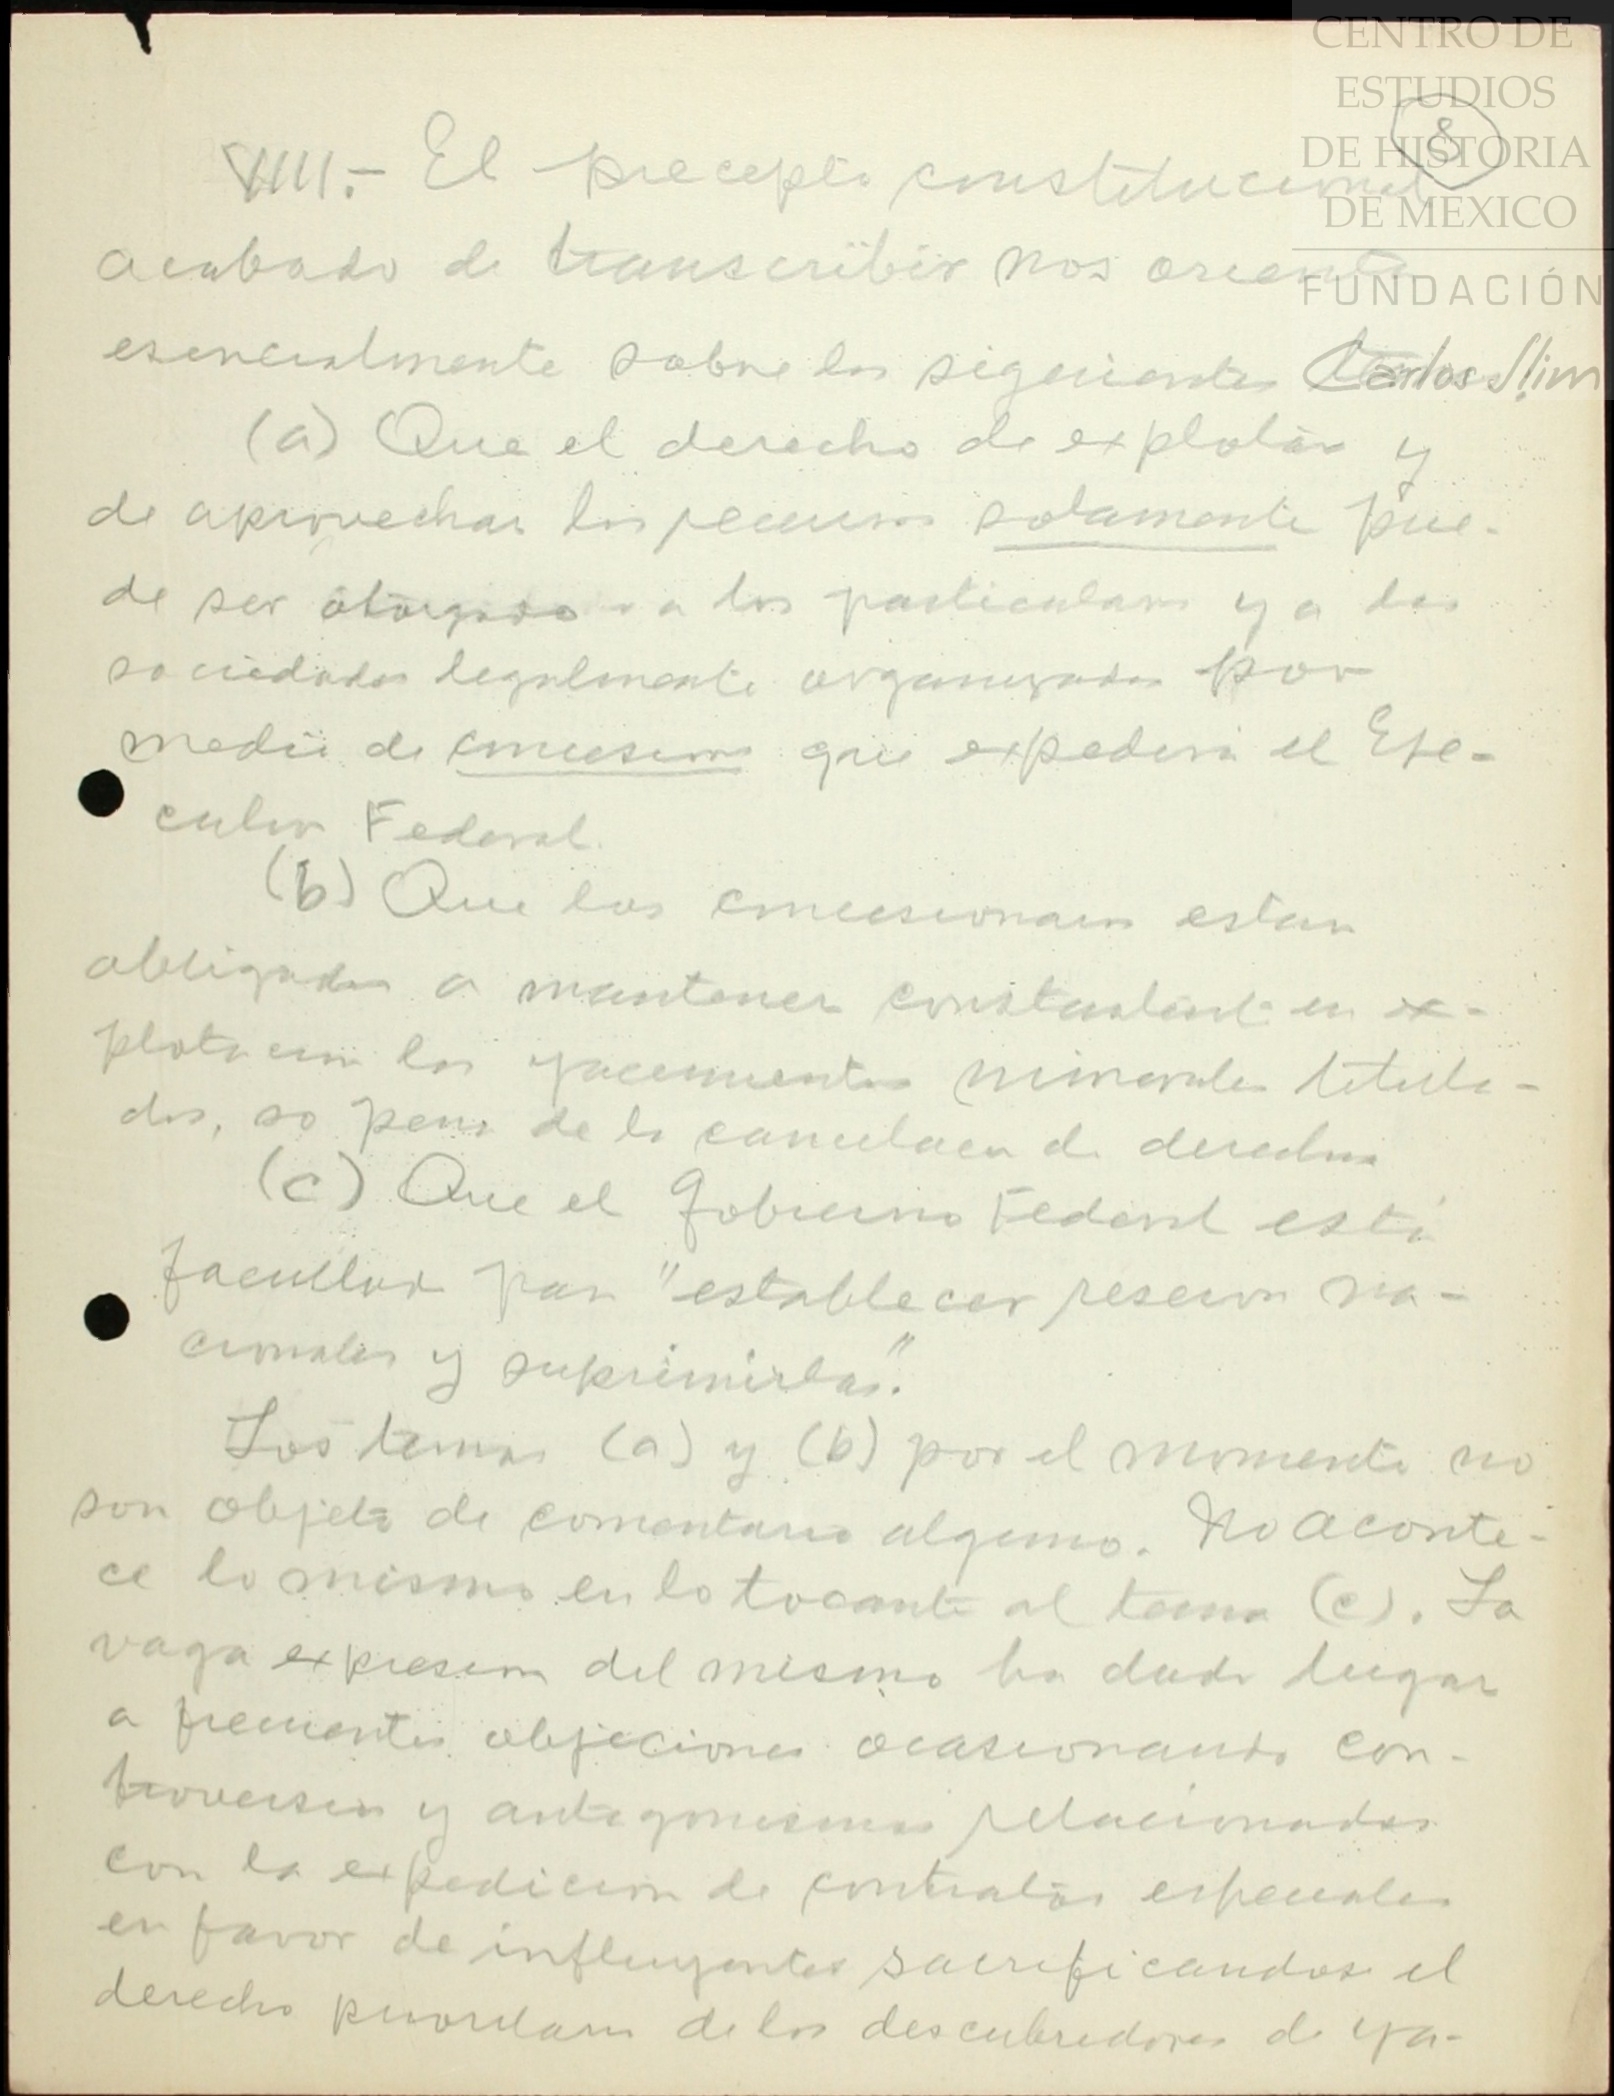 CENTRO DE
ESTUDIOS
DE HISTORIA
DE MEXICO
FUNDACIÓN
Carlos Slim
8
VIII.- El precepto constitucional
acabado de transcribir nos orienta
esencialmente sobre los siguientes
(a) Que el derecho de explotar y
de aprovechar los recursos solamente pue-
de ser otorgado a los particulares y a las
sociedades legalmente organizadas por
medio de concesiones que expedira el Eje-
cutivo Federal.
(b) Que los concesionarios estan
obligados a mantener constantemente en ex-
plotacion los yacimientos minerales titula-
dos, so pena de la cancelacion de derechos
(c) Que el Gobierno Federal está
facultado para "establecer reservas na-
cionales y suprimirlas".
Los temas (a) y (b) por el momento no
son objeto de comentario alguno. No aconte-
ce lo mismo en lo tocante al tema (c). La
vaga expresion del mismo ha dado lugar
a frecuentes objeciones ocasionando con-
troversias y antagonismos relacionados
con la expedicion de contratos especiales
en favor de influyentes sacrificandose el
derecho prioritario de los descubridores de ya-